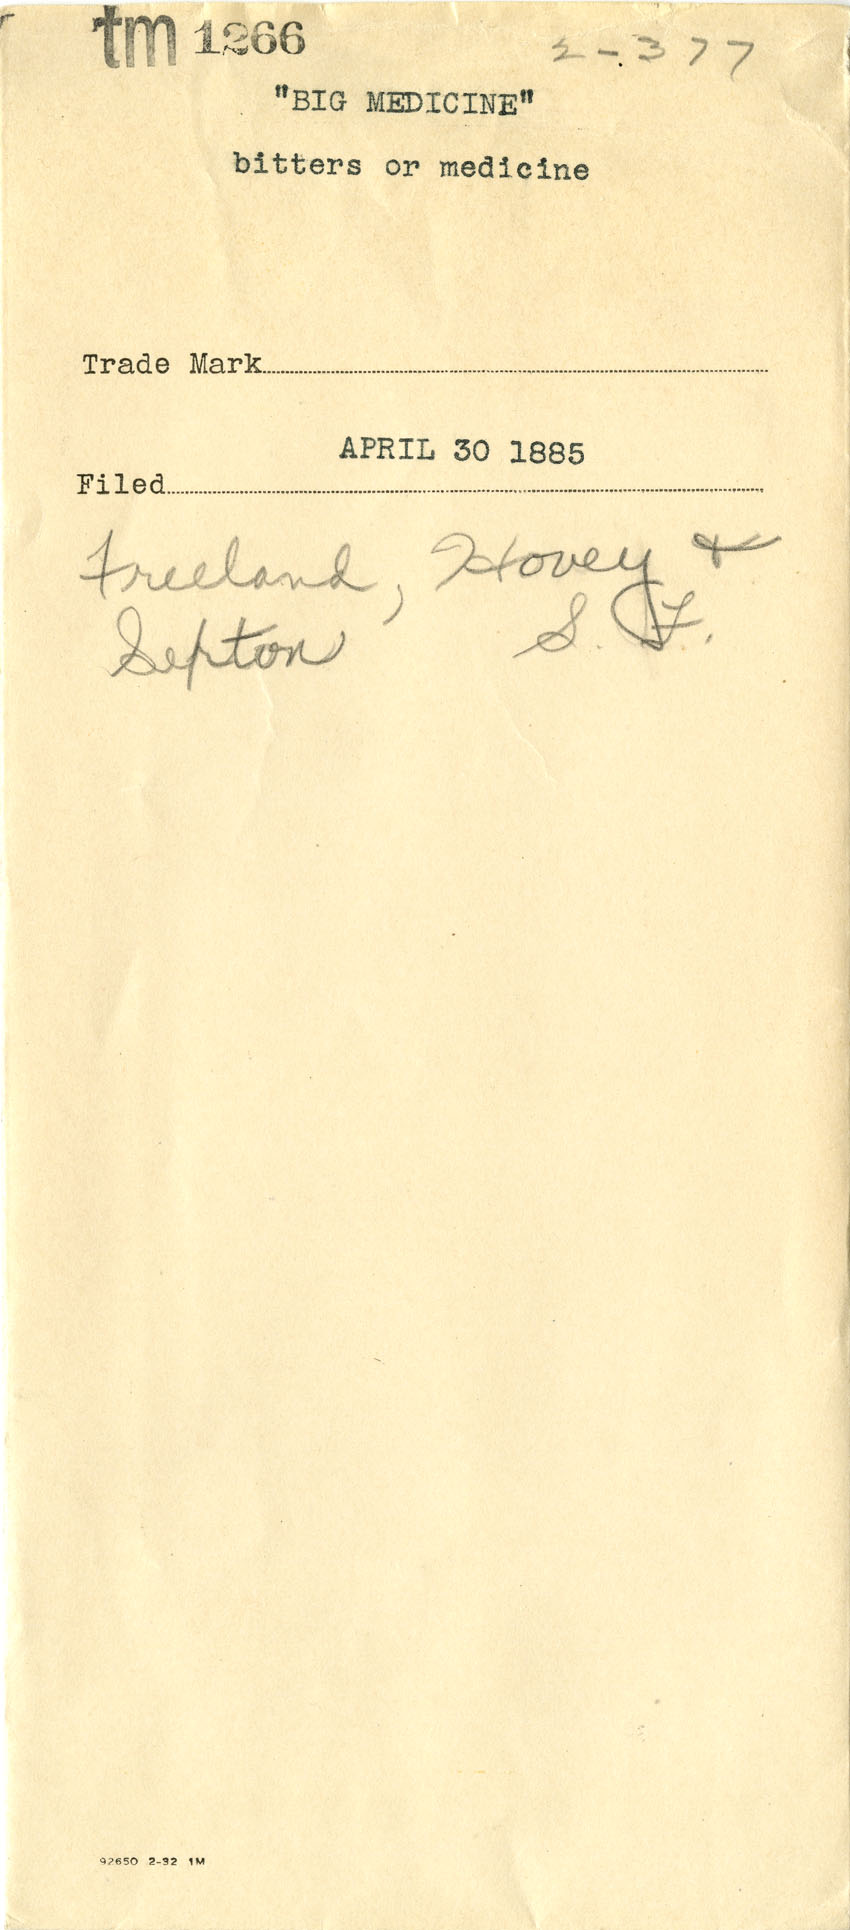 tm 1266 2-377
"BIG MEDICINE"
bitters or medicine
Trade Mark
APRIL 30 1885
Filed
Freeland, Hovey &
Septon S. F.
92650 2-32 1M